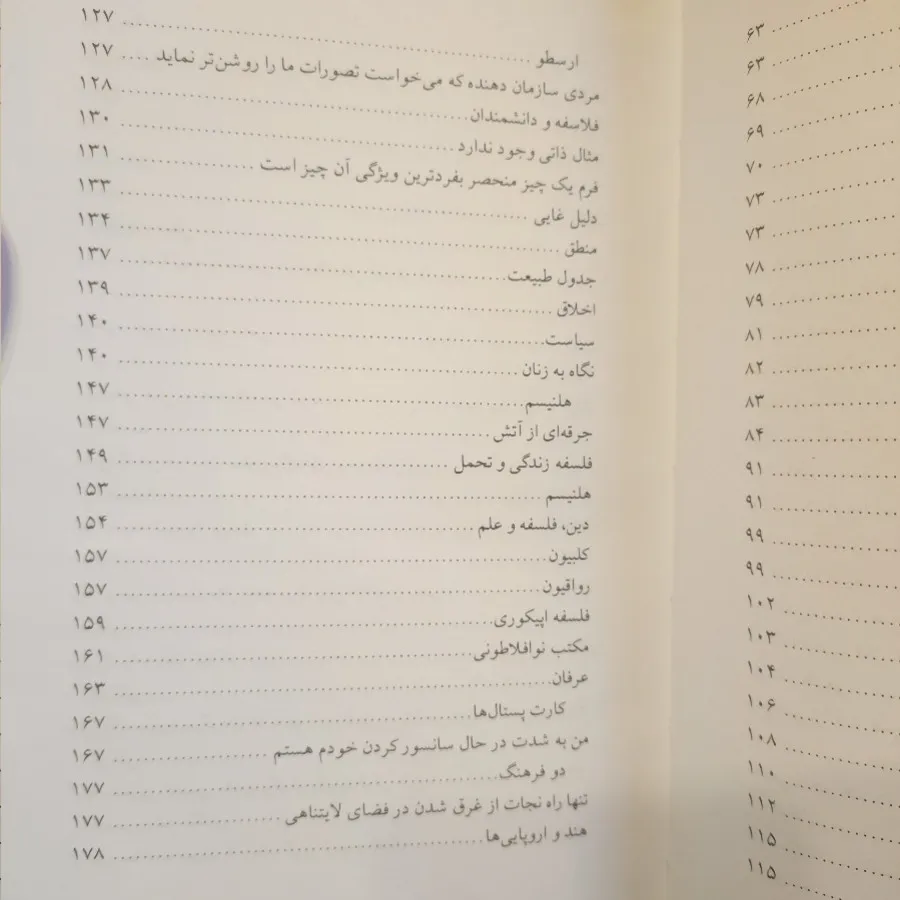 ۶۳
۶۳
۶۸
۶۹
۷۰
۷۳
۷۳
۷۸
۷۹
۸۱
۸۲
۸۳
۸۴
۹۱
۹۱
۹۹
۹۹
۱۰۲
۱۰۳
۱۰۴
۱۰۶
۱۰۸
۱۱۰
۱۱۲
۱۱۵
۱۱۵
ارسطو ........ ۱۲۷
مردی سازمان دهنده که می‌خواست تصورات ما را روشن‌تر نماید .... ۱۲۷
فلاسفه و دانشمندان ........ ۱۲۸
مثال ذاتی وجود ندارد ........ ۱۳۰
فرم یک چیز منحصر بفردترین ویژگی آن چیز است ........ ۱۳۱
دلیل غایی ........ ۱۳۳
منطق ........ ۱۳۴
جدول طبیعت ........ ۱۳۷
اخلاق ........ ۱۳۹
سیاست ........ ۱۴۰
نگاه به زنان ........ ۱۴۰
هلنیسم ........ ۱۴۷
جرقه‌ای از آتش ........ ۱۴۷
فلسفه زندگی و تحمل ........ ۱۴۹
هلنیسم ........ ۱۵۳
دین، فلسفه و علم ........ ۱۵۴
کلبیون ........ ۱۵۷
رواقیون ........ ۱۵۷
فلسفه اپیکوری ........ ۱۵۹
مکتب نوافلاطونی ........ ۱۶۱
عرفان ........ ۱۶۳
کارت پستال‌ها ........ ۱۶۷
من به شدت در حال سانسور کردن خودم هستم ........ ۱۶۷
دو فرهنگ ........ ۱۷۷
تنها راه نجات از غرق شدن در فضای لایتناهی ........ ۱۷۷
هند و اروپایی‌ها ........ ۱۷۸